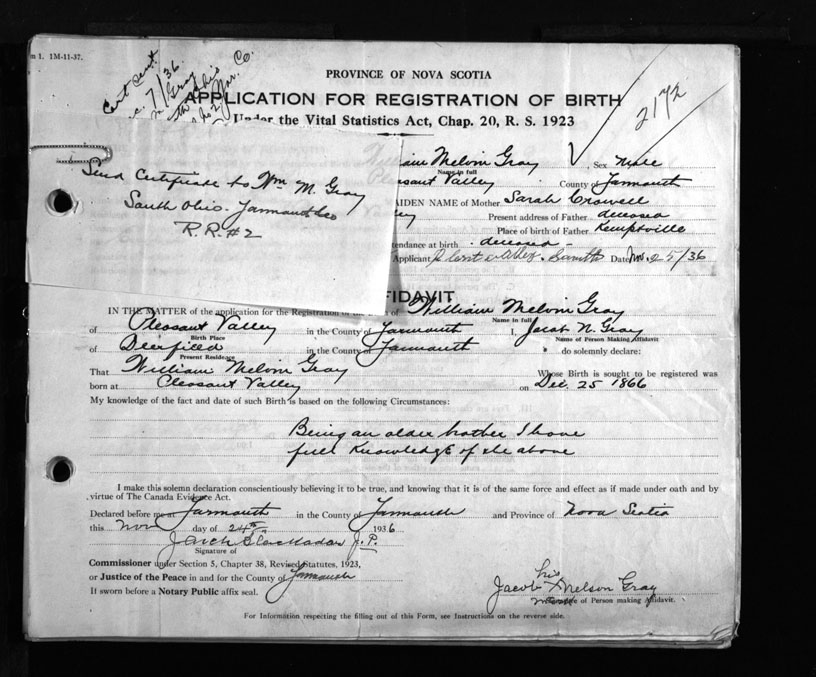 m 1. 1M-11-37.
Cert sent
c. 7/36
Gray
Ohio
Yar. Co.
2172
PROVINCE OF NOVA SCOTIA
APPLICATION FOR REGISTRATION OF BIRTH
Under the Vital Statistics Act, Chap. 20, R. S. 1923
iam Melvin Gray, Sex Male
Name in full
asant Valley County of Yarmouth
AIDEN NAME of Mother Sarah Crowell
ley Present address of Father deceased
Place of birth of Father Kemptville
tendance at birth deceased
Applicant Smith Date Nov. 25/36
Send Certificate to Wm M. Gray
South Ohio - Yarmouth Co
R.R. #2
FIDAVIT
IN THE MATTER of the application for the Registration of William Melvin Gray
Name in full
of Pleasant Valley in the County of Yarmouth I, Jacob N. Gray
Birth Place
Name of Person Making Affidavit
of Deerfield in the County of Yarmouth do solemnly declare:
Present Residence
That William Melvin Gray Whose Birth is sought to be registered was
born at Pleasant Valley on Dec. 25 1866
My knowledge of the fact and date of such Birth is based on the following Circumstances:
Being an older brother I have
full Knowledge of the above
I make this solemn declaration conscientiously believing it to be true, and knowing that it is of the same force and effect as if made under oath and by
virtue of The Canada Evidence Act.
Declared before me at Yarmouth in the County of Yarmouth and Province of Nova Scotia
this Nov day of 24th 1936
J. P.
Signature of
Commissioner under Section 5, Chapter 38, Revised Statutes, 1923,
or Justice of the Peace in and for the County of Yarmouth
If sworn before a Notary Public affix seal.
his
Jacob X Nelson Gray
mark
of Person making Affidavit.
For Information respecting the filling out of this Form, see Instructions on the reverse side.